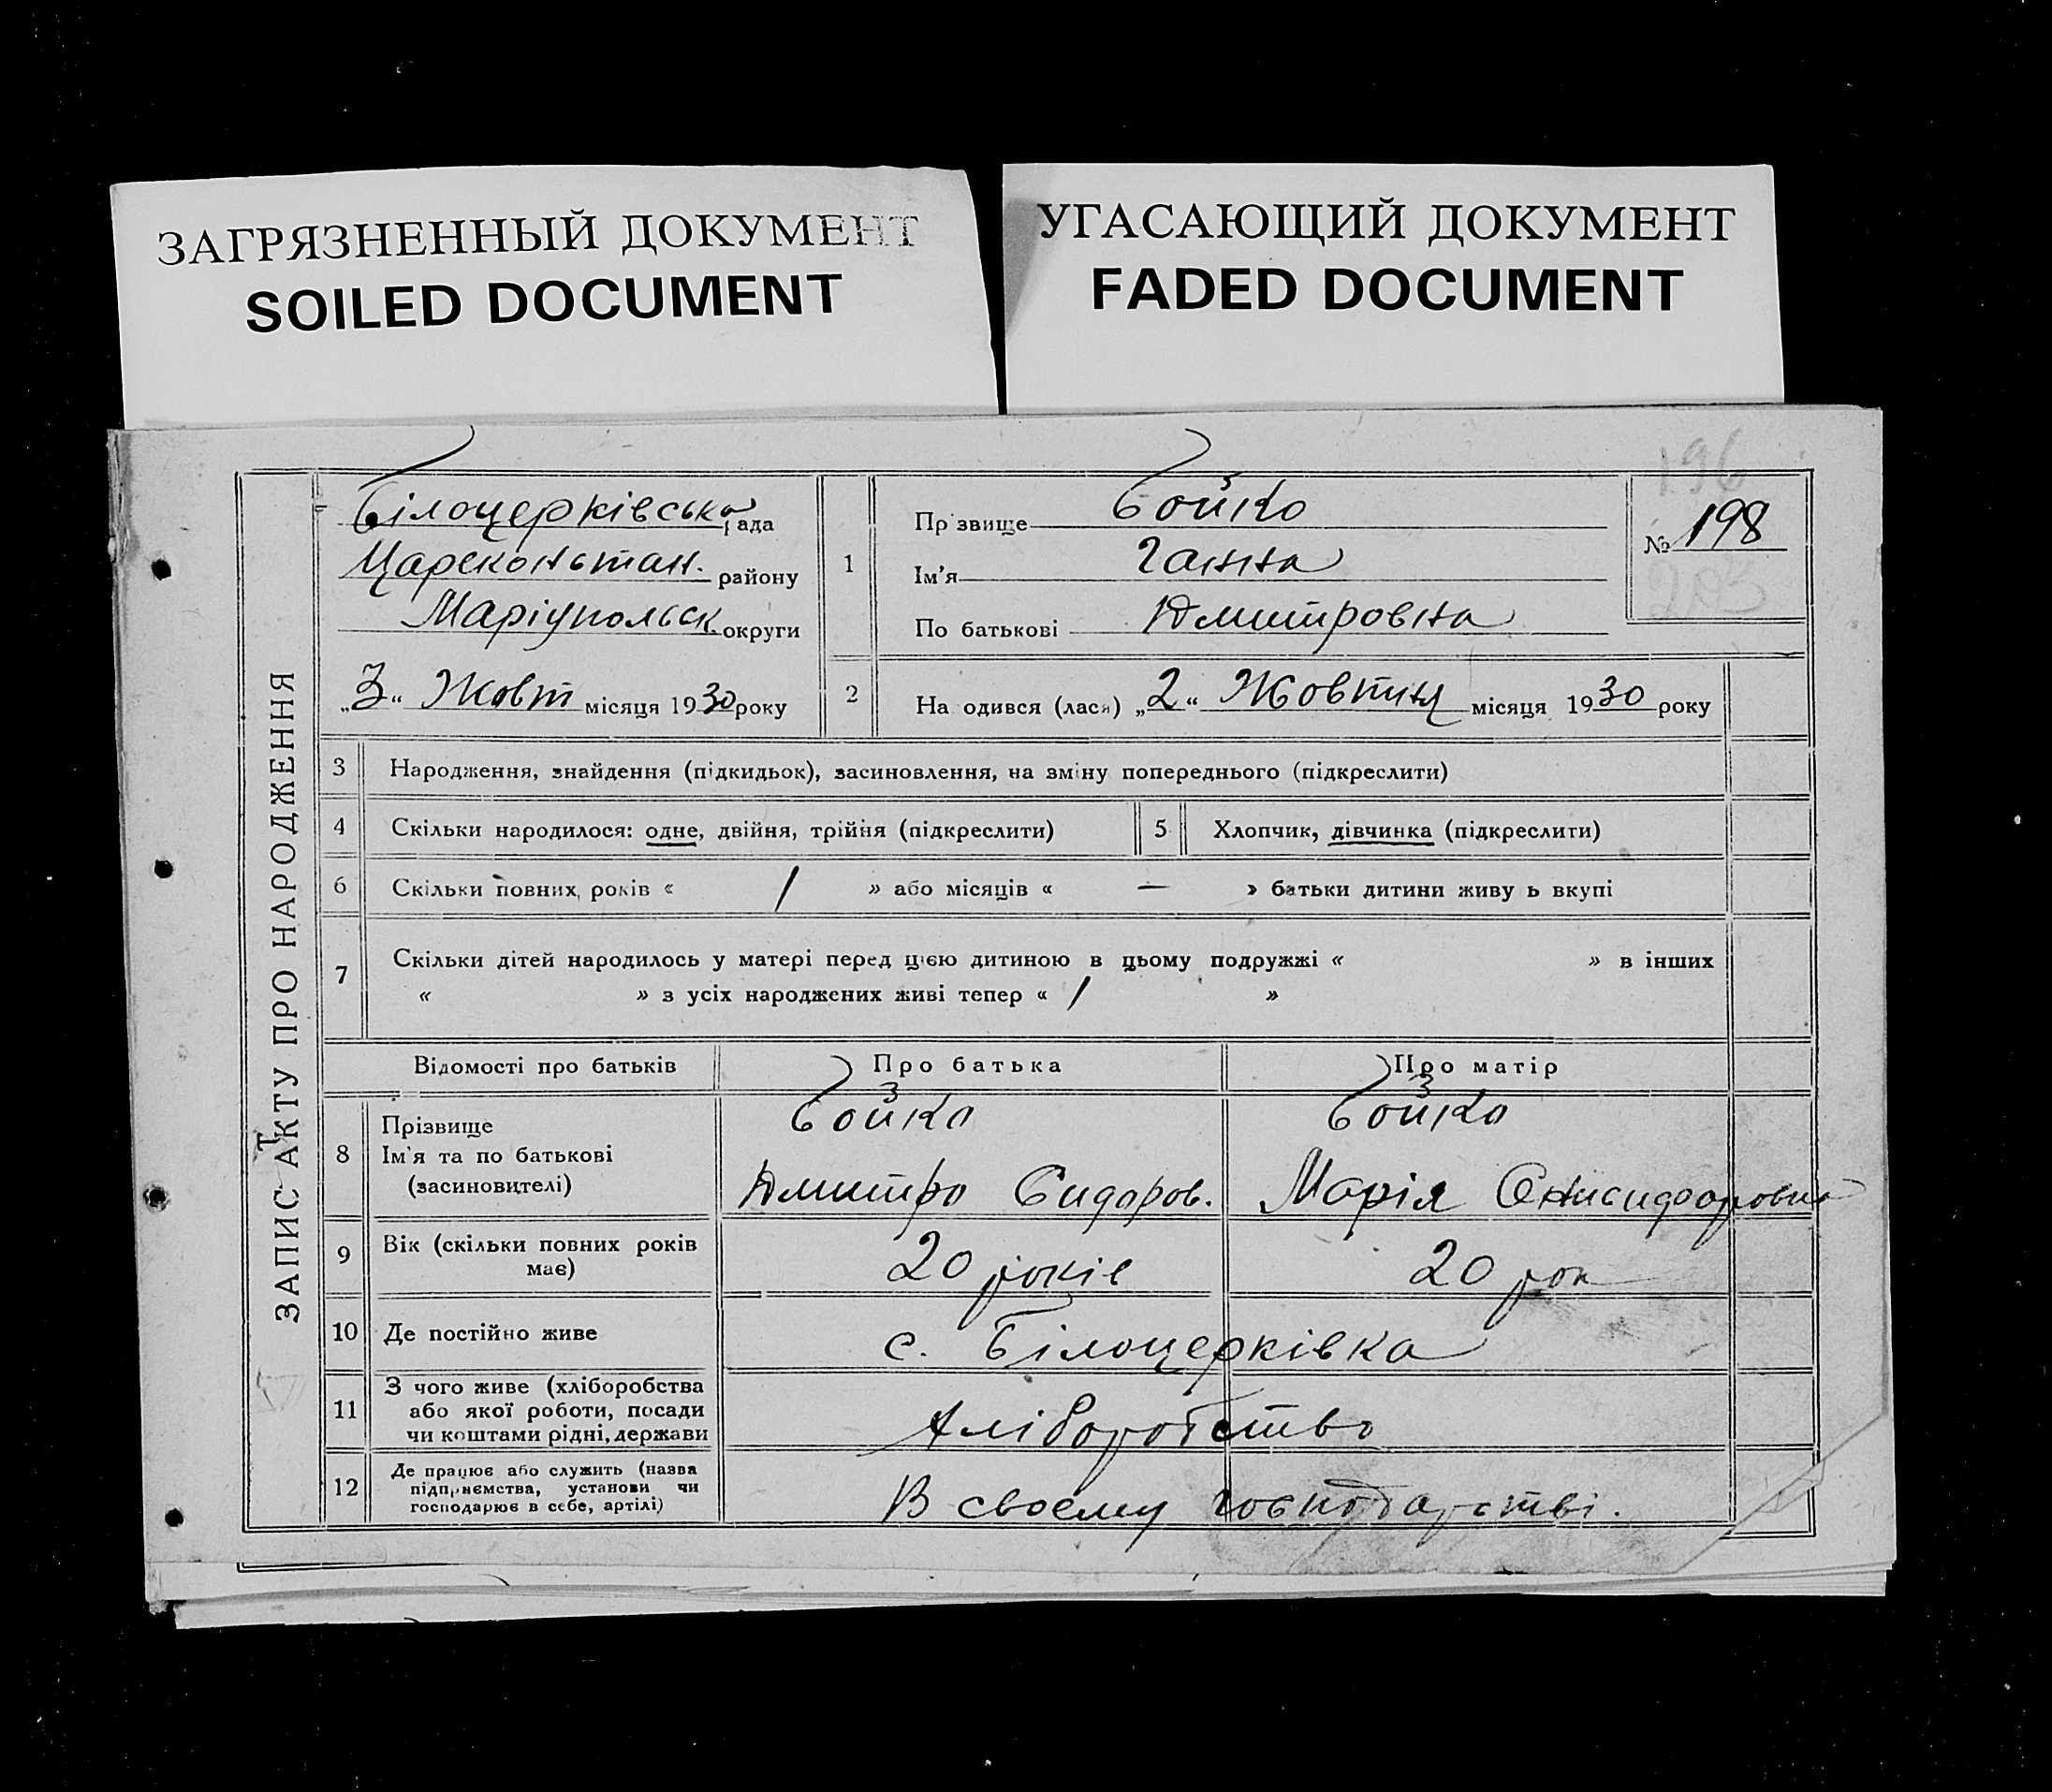 ЗАГРЯЗНЕННЫЙ ДОКУМЕНТ
SOILED DOCUMENT
УГАСАЮЩИЙ ДОКУМЕНТ
FADED DOCUMENT
196
ЗАПИС АКТУ ПРО НАРОДЖЕННЯ
Білоцерківська рада
Царекоństан. району
Маріупольськ. округи
„3“ Жовт місяця 1930 року
1
Прізвище Бойко
Ім'я Ганна
По батькові Дмитровна
№ 198
203
2 На одився (лася) „2“ Жовтня місяця 1930 року
3 Народження, знайдення (підкидьок), засиновлення, на зміну попереднього (підкреслити)
4 Скільки народилося: одне, двійня, трійня (підкреслити) 5 Хлопчик, дівчинка (підкреслити)
6 Скільки повних років « / » або місяців « — » батьки дитини живу ь вкупі
7 Скільки дітей народилось у матері перед цією дитиною в цьому подружжі « » в інших
« » з усіх народжених живі тепер « / »
Відомості про батьків Про батька Про матір
8 Прізвище Бойко Бойко
Ім'я та по батькові
(засновителі) Дмитро Сидоров. Марія Онисидоровна
9 Вік (скільки повних років
має) 20 років 20 рок
10 Де постійно живе с. Білоцерківка
11 З чого живе (хліборобства
або якої роботи, посади
чи коштами рідні, держави Хліборобство
12 Де працює або служить (назва
підприємства, установи чи
господарює в себе, артілі) В своему господарстві.